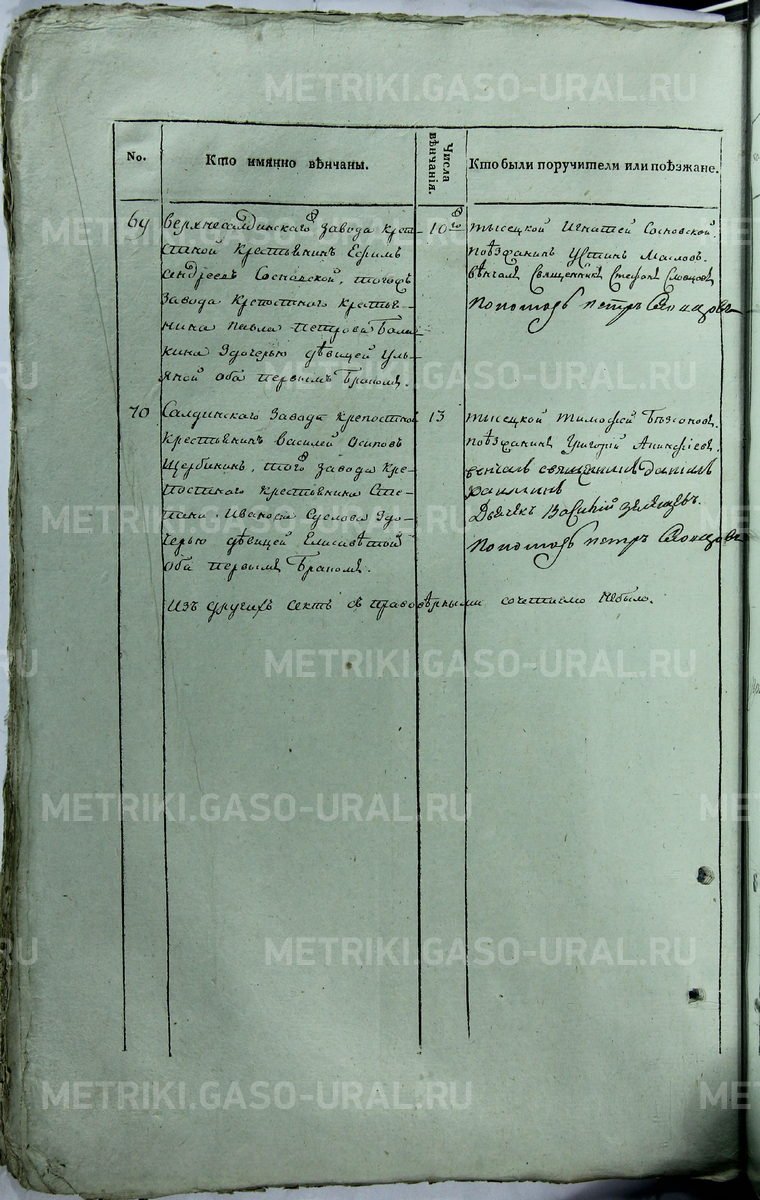 METRIKI.GASO-URAL.RU
No.
Кто имянно вѣнчаны.
Числа вѣнчанія.
Кто были поручители или поѣзжане.
69
верхнесалдинскаго завода крѣп
стной крестьянинъ Ефимъ
андреевъ Сосновской, тогожъ
завода крепостнаго крестья-
нина павла петрова
кина здочерью дѣвицей Уль-
яной оба первымъ бракомъ.
10го
тысецкой игнатей Сосновской.
поѣзжанинъ Устинъ Масловъ.
вѣнчалъ Священникъ Стефанъ Словцовъ
пономарь петръ
70
Салдинскаго завода крепостной
крестьянинъ василей осиповъ
Щербининъ, того завода кре-
постнаго крестьянина Сте-
пана Иванова Суслова здо-
черью дѣвицей Елисавѣтой
оба первымъ бракомъ.
13
тысецкой тимофей
поѣзжанинъ григорей
венчалъ священникъ даниилъ
Дьячекъ
пономарь петръ
Изъ другихъ сектъ съ правовѣрными сочтанию небыло.
METRIKI.GASO-URAL.RU
METRIKI.GASO-URAL.RU
METRIKI.GASO-URAL.RU
METRIKI.GASO-URAL.RU
METRIKI.GASO-URAL.RU
METRIKI.GASO-URAL.RU
METRIKI.GASO-URAL.RU